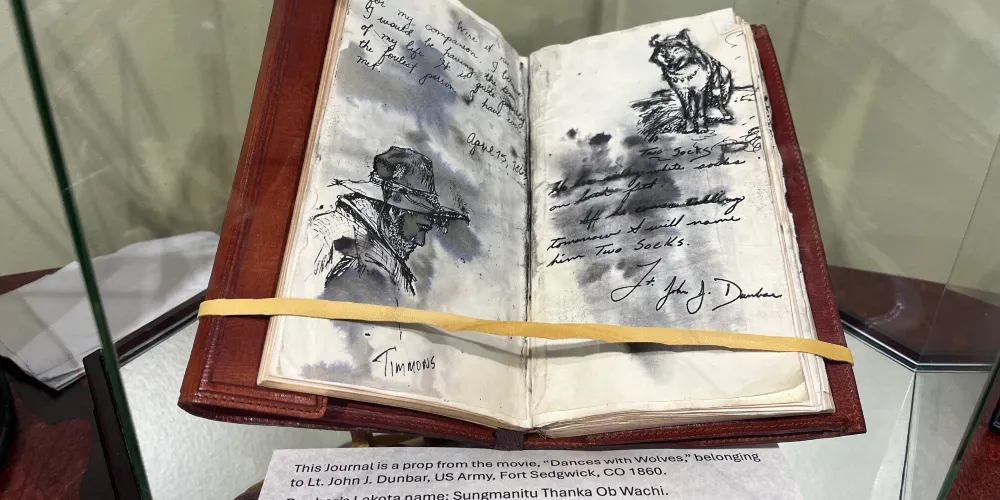 Were it
for my companion I
I would be having the
of my life. It is quite
the foulest person I have
met.
April 15, 186
Timmons
Two Socks
white socks
on both feet.
If he comes calling
tomorrow I will name
him Two Socks.
Lt. John J. Dunbar
This Journal is a prop from the movie, "Dances with Wolves," belonging
to Lt. John J. Dunbar, US Army, Fort Sedgwick, CO 1860.
Dunbar's Lakota name: Sungmanitu Thanka Ob Wachi.